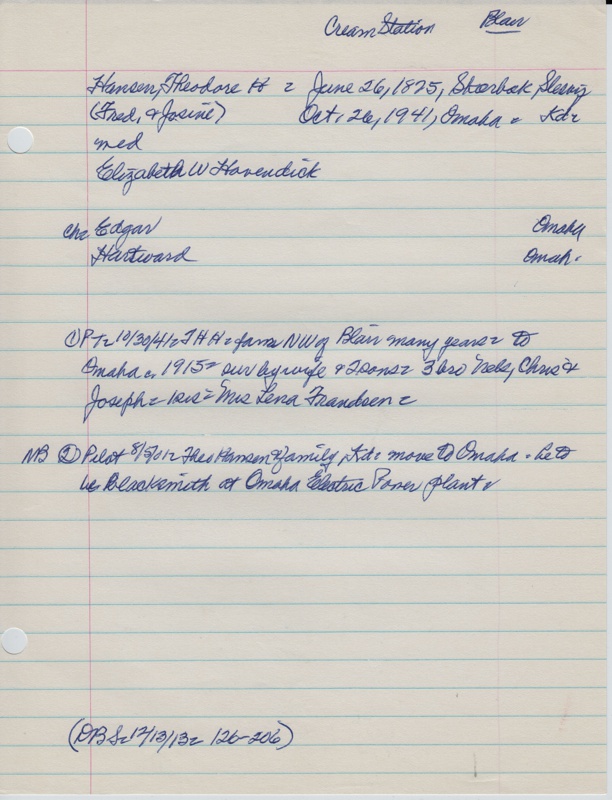 Cream Station Blair
Hansen, Theodore H = June 26, 1875, Skærbæk, Slesvig
(Fred, & Josine) Oct. 26, 1941, Omaha = Kd=
med
Elizabeth W Havendick
Ch= Edgar Omaha
Hartward Omah.
① PT= 10/30/41= THH= farm NW of Blair many years= to
Omaha c. 1915= sur by wife & 2 sons= 3 bro Nels, Chris &
Joseph= 1 sis= Mrs Lena Frandsen=
NB ② Pilot = Theo Hansen & family, Kd= move to Omaha = he to
be Blacksmith at Omaha Electric Power plant
(DBS= 12/13/13= 126-206)